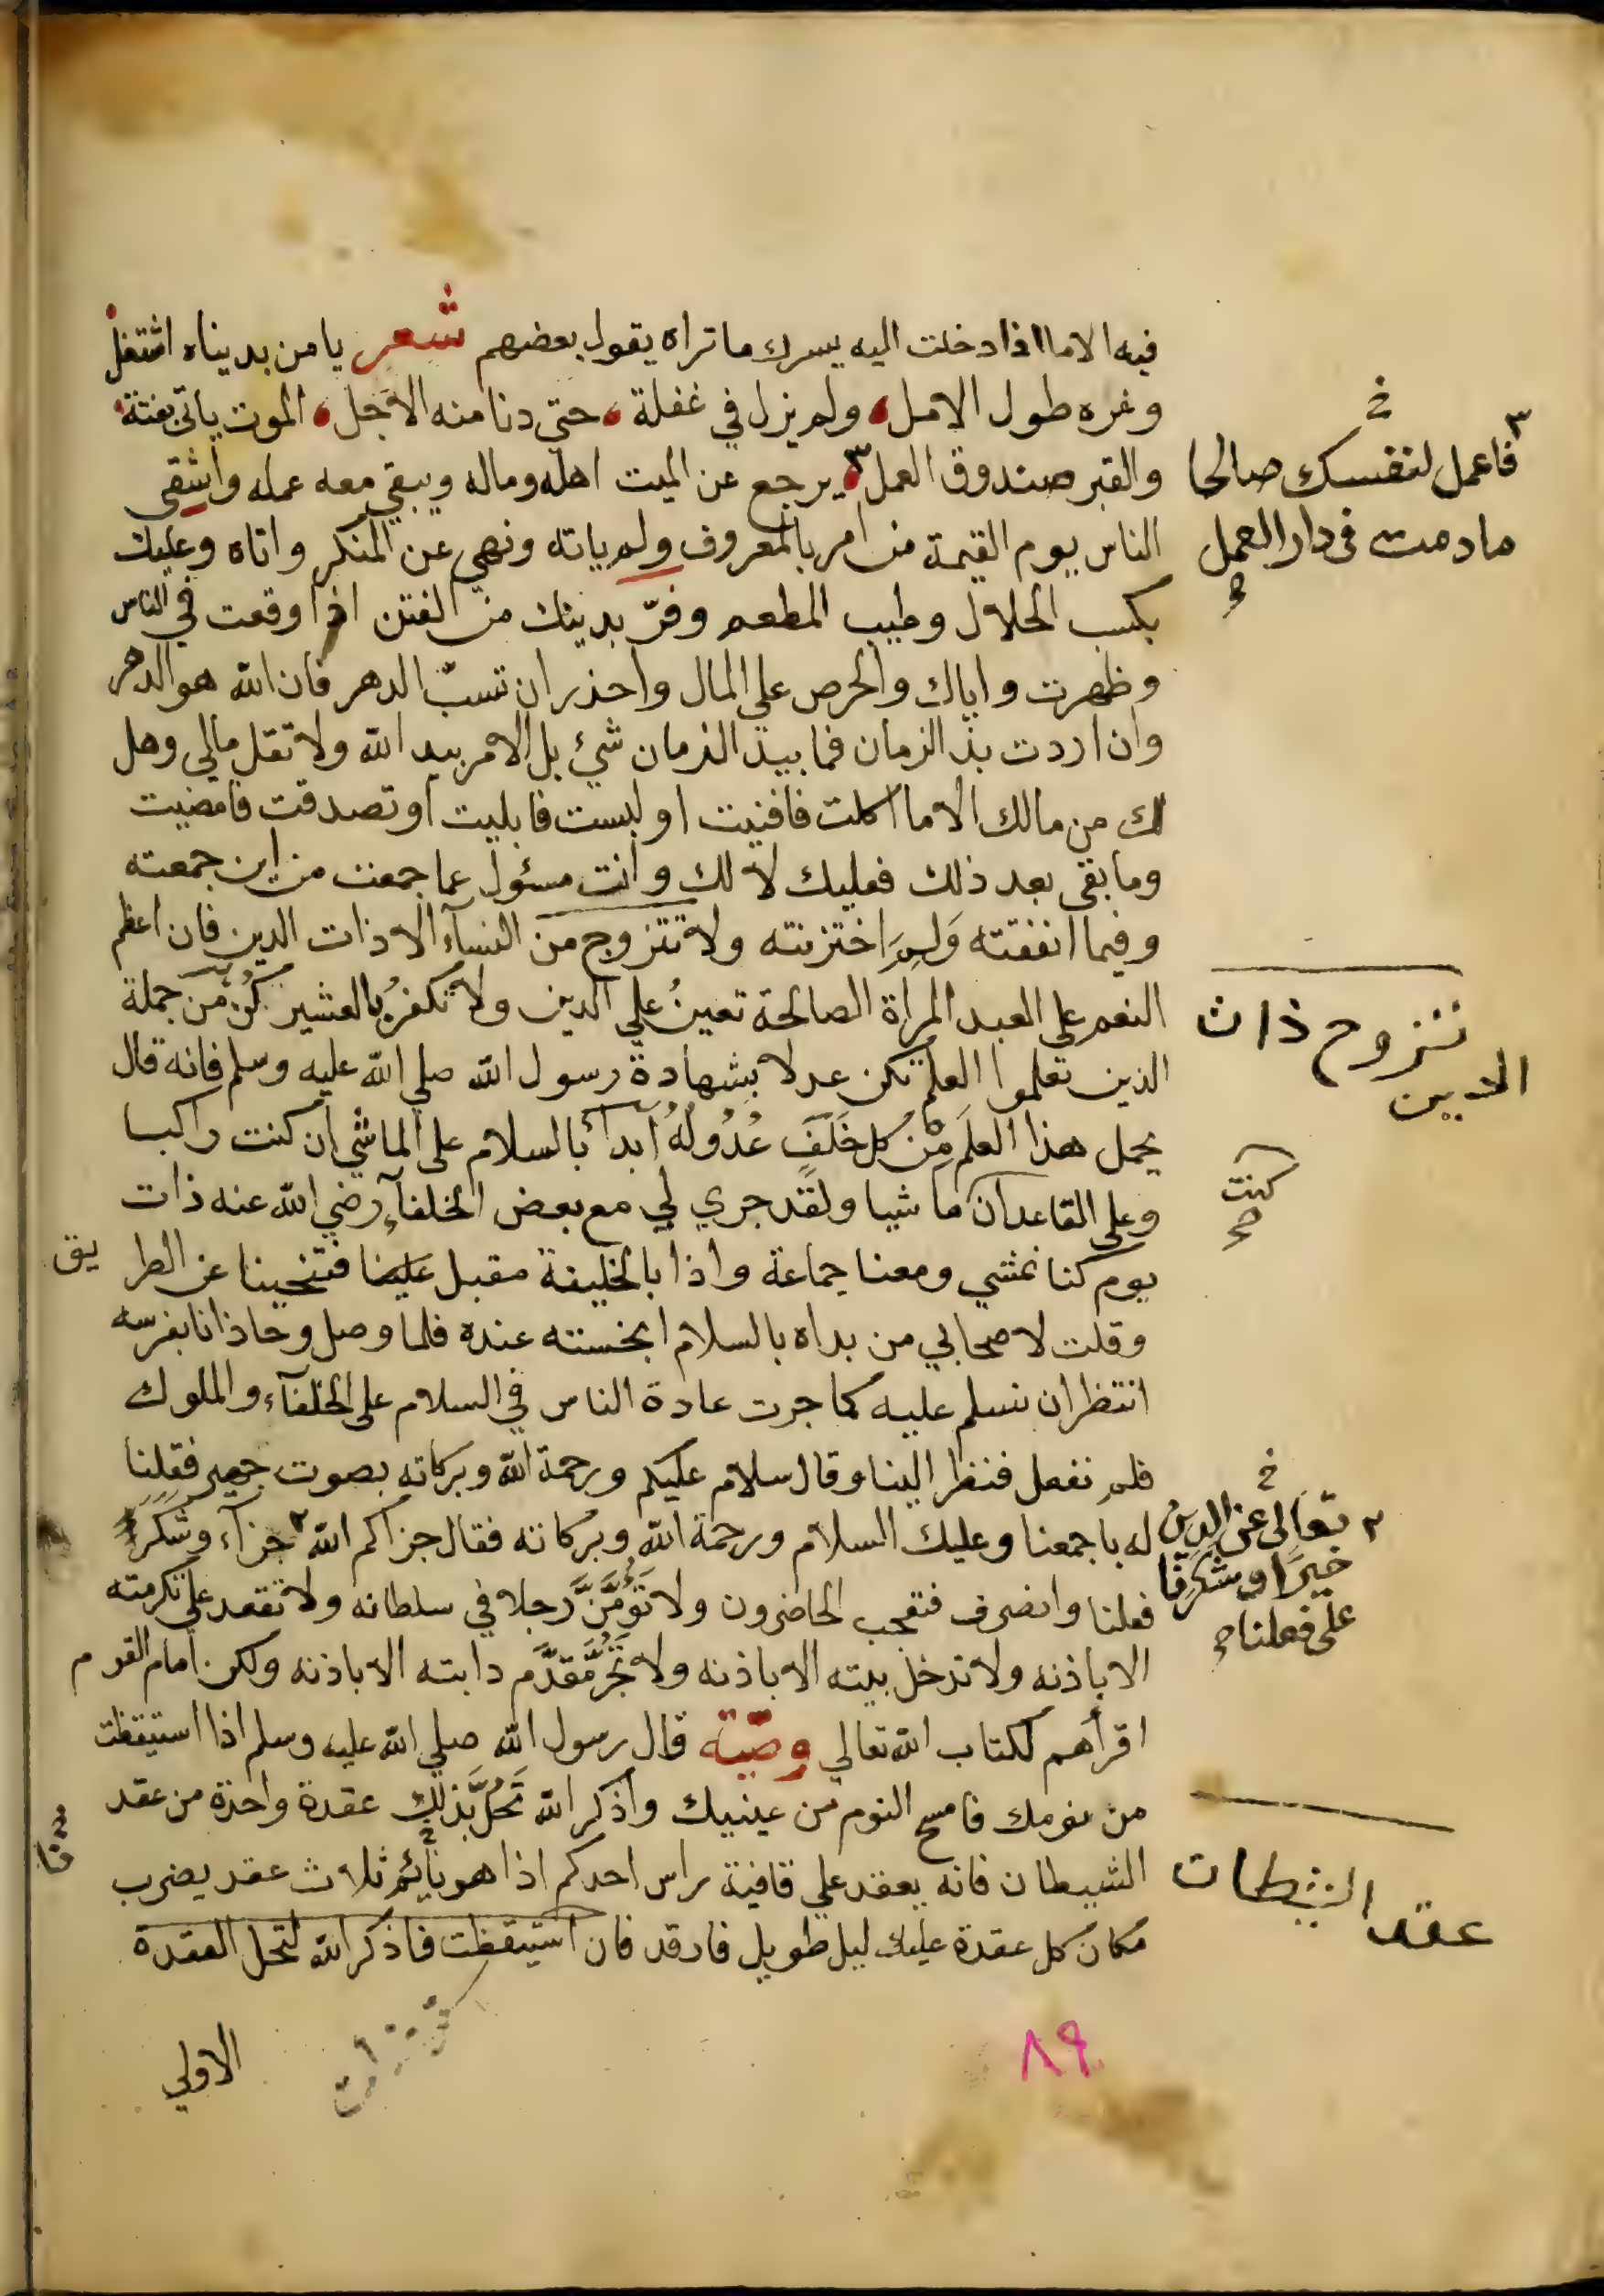 فيه الا ما اذا دخلت اليه يسرك ما تراه يقول بعضهم شعر يا من بديناه اشتغل
وغره طول الامل ولم يزل في غفلة حتي دنا منه الاجل الموت ياتي بغتة
والقبر صندوق العمل ٣ يرجع عن الميت اهله وماله ويبقي معه عمله واشقي
٣ فاعمل لنفسك صالحا
ما دمت في دار العمل
الناس يوم القيمة من امر بالمعروف ولم ياته ونهي عن المنكر واتاه وعليك
بكسب الحلال وطيب المطعم وفرّ بدينك من الفتن اذا وقعت في الناس
وظهرت واياك والحرص علي المال واحذر ان تسبّ الدهر فان الله هو الدهر
وان اردت بذ الزمان فما بيد الزمان شيء بل الامر بيد الله ولا تقل مالي وهل
لك من مالك الا ما اكلت فافنيت او لبست فابليت او تصدقت فامضيت
وما بقي بعد ذلك فعليك لا لك وانت مسئول عما جمعت من اين جمعته
وفيما انفقته وَلِمَ اختزنته ولا تتزوج من النسآء الا ذات الدين فان اعظم
النعم على العبد المرأة الصالحة تعينُ علي الدين ولا تكفرُ بالعشير كُنْ من جملة
تتزوج ذات
الدين
الذين تعلموا العلم تكن عدلا بشهادة رسول الله صلي الله عليه وسلم فانه قال
يحمل هذا العلمَ مِنْ كل خَلَفٍ عُدُولُهُ ابدأ بالسلام على الماشي ان كنت راكبا
وعلي القاعد ان ماشيا ولقد جري لي مع بعض الخلفآء رضي الله عنه ذات
كنت
صح
يوم كنا نمشي ومعنا جماعة واذا بالخليفة مقبل علينا فتنحينا عن الطريق
وقلت لاصحابي من بداه بالسلام ابخسته عنده فلما وصل وحاذانا بفرسه
انتظر ان نسلم عليه كما جرت عادة الناس في السلام على الخلفآء والملوك
فلم نفعل فنظر الينا وقال سلام عليكم ورحمة الله وبركاته بصوت جهير فقلنا
له باجمعنا وعليك السلام ورحمة الله وبركاته فقال جزاكم الله ٢ جزآء وشكر
٢ تعالى عن الدين
خيرًا وشكرنا
على فعلنا
فعلنا وانصرف فتعجب الحاضرون ولا تَؤُمَّنَّ رجلا في سلطانه ولا تقعد علي تكرمته
الا باذنه ولا تدخل بيته الا باذنه ولا تَجُرَّ مُقدَّم دابته الا باذنه ولكن امام القوم
اقرأهم لكتاب الله تعالي وصيّة قال رسول الله صلي الله عليه وسلم اذا استيقظت
من نومك فامسح النوم من عينيك واذكر الله تَحُلَّ بذلك عقدة واحدة من عقد
الشيطان فانه يعقد علي قافية راس احدكم اذا هو نآئم ثلاث عقد يضرب
عقد الشيطان
مكان كل عقدة عليك ليل طويل فارقد فان استيقظت فاذكر الله لتحل العقدة
الاولي
٨٩